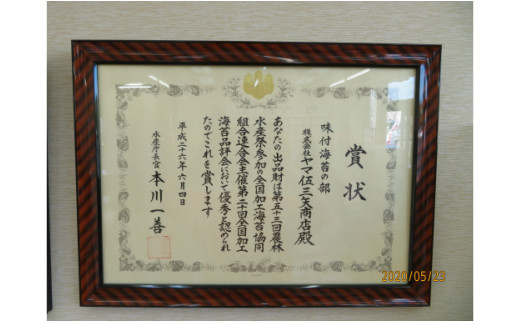 賞状
味付海苔の部
株式会社ヤマ伍三矢商店殿
あなたの出品財は第五十三回農林
水産祭参加の全国加工海苔協同
組合連合会主催第二十回全国加工
海苔品評会において優秀と認められ
たのでこれを賞します
平成二十六年六月四日
水産庁長官 本川一善
2020/05/23